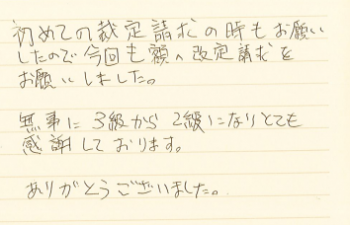 初めての裁定請求の時もお願い
したので今回も額へ改定請求を
お願いしました。
無事に3級から2級になりとても
感謝しております。
ありがとうございました。